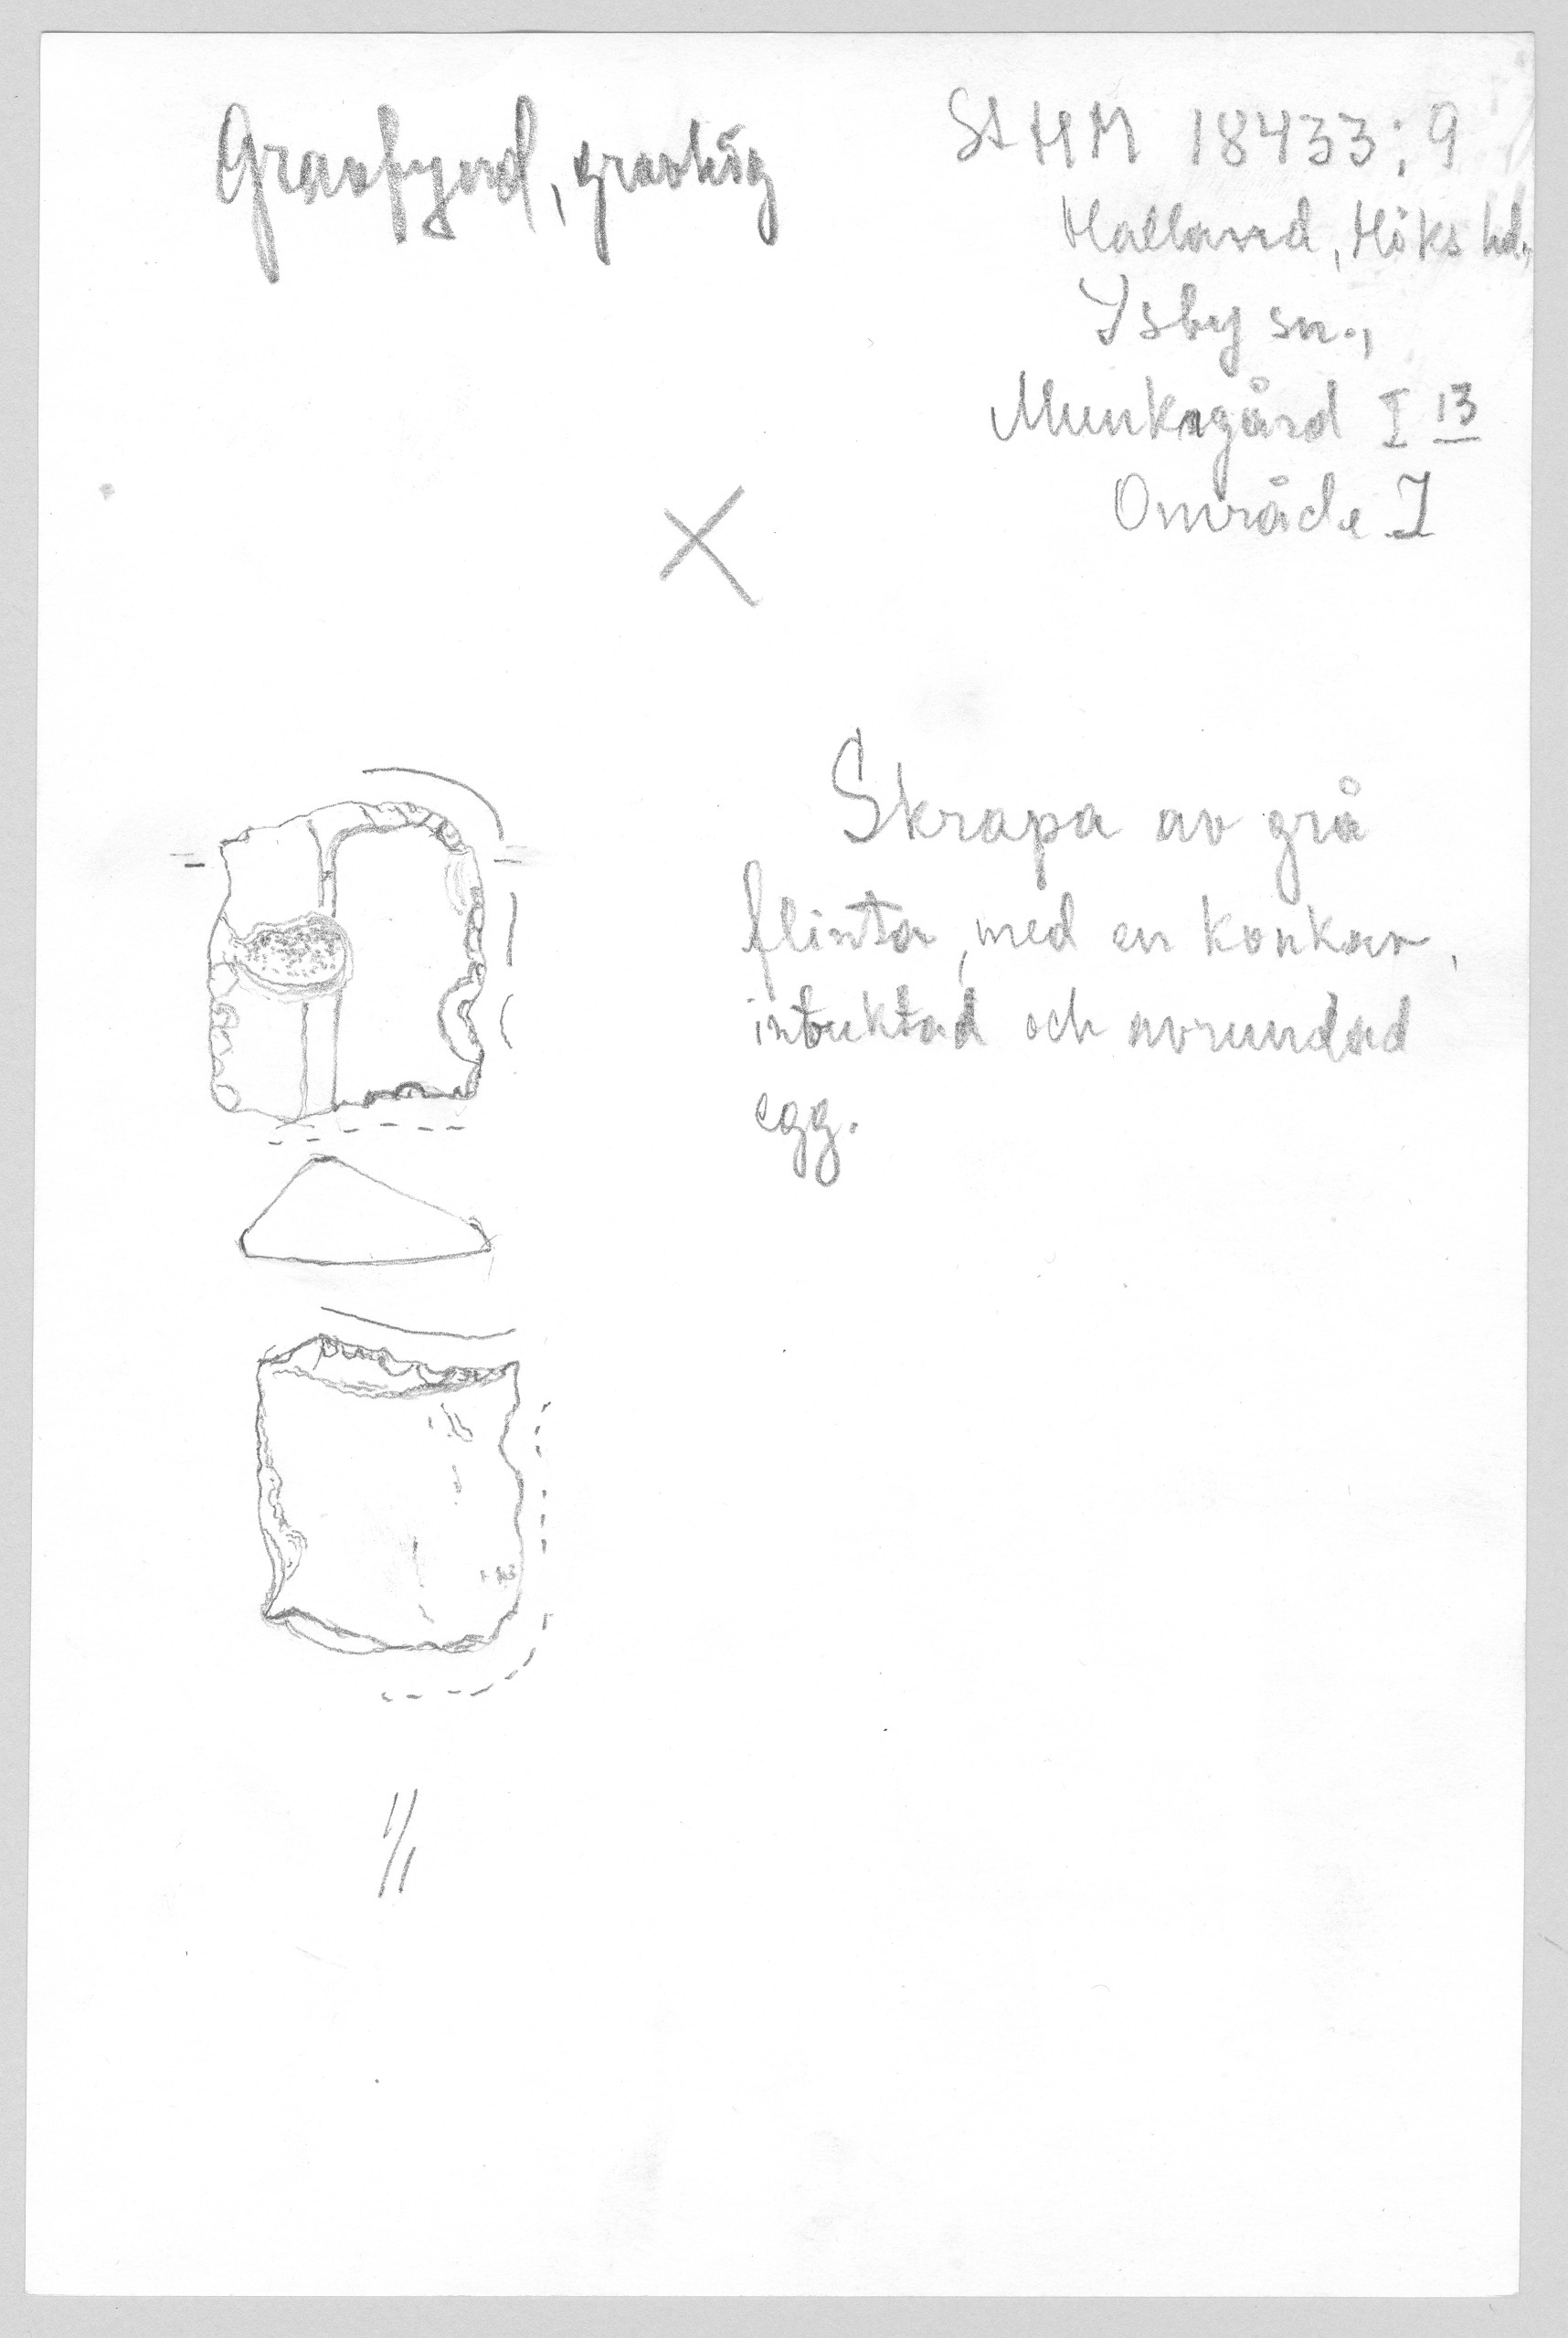 Gravfynd, gravhög
StHM 18433:9
Halland, Höks hd.,
Ysby sn.,
Munkagård I 13
Område I
X
Skrapa av grå
flinta, med en konkav,
inbuktad och avrundad
egg.
1/1